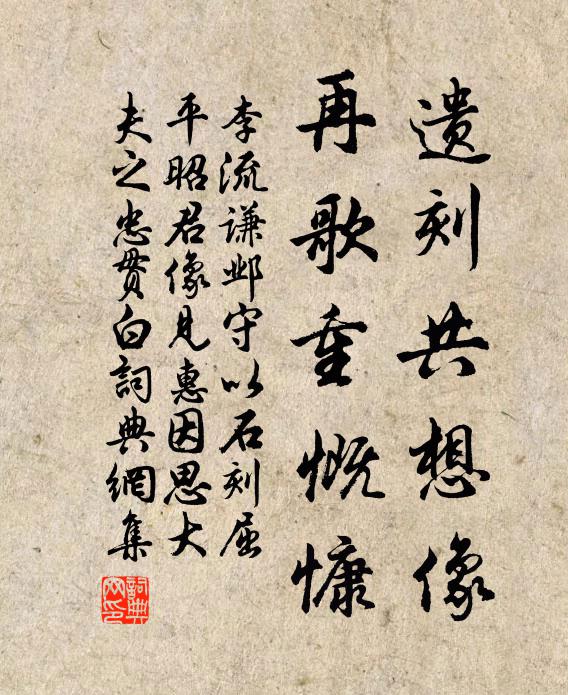 遗刻共想像
再歌重慨慷
李流谦邺守以石刻屈
平昭君像见惠因思大
夫之忠贯白詞典網集
詞典網印